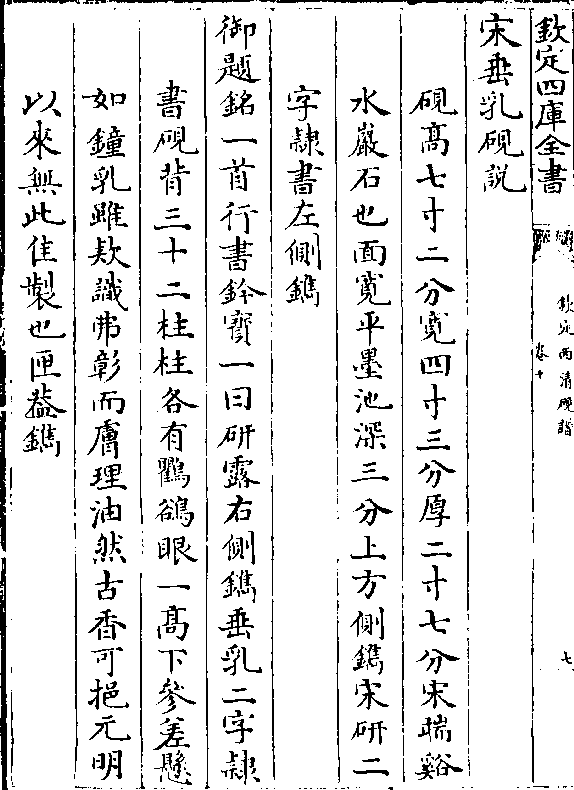 欽定四庫全書
欽定西清硯譜
卷十
七
宋垂乳硯說
硯髙七寸二分寛四寸三分厚二寸七分宋端谿
水巖石也面寛平墨池深三分上方側鐫宋研二
字隷書左側鐫
御題銘一首行書鈐寳一曰研露右側鐫垂乳二字隷
書硯背三十二柱柱各有鸜鵒眼一髙下參差懸
如鐘乳雖欵識弗彰而膚理油然古香可挹元明
以來無此佳製也匣葢鐫